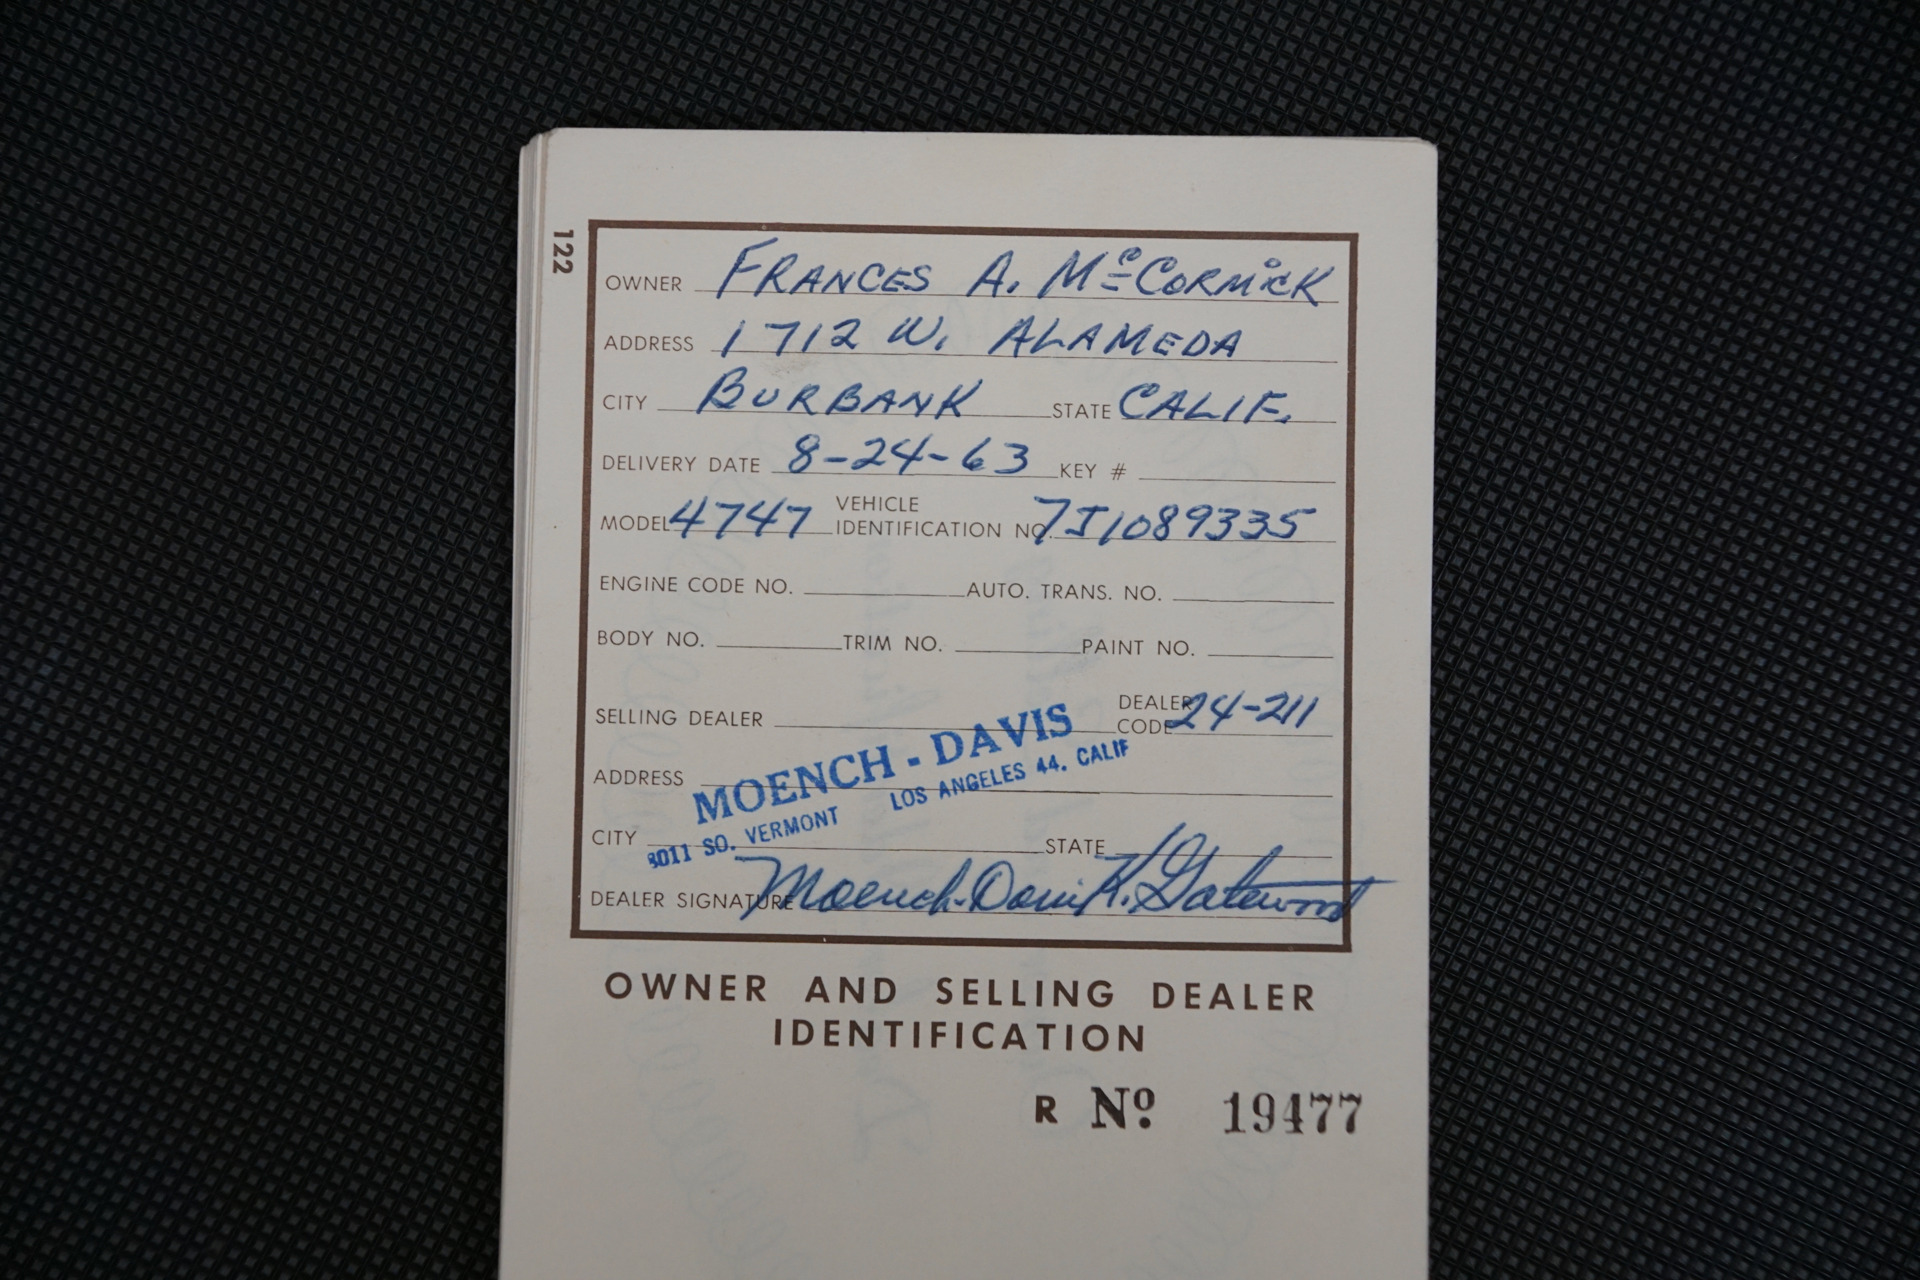 122
OWNER FRANCES A. McCORMICK
ADDRESS 1712 W. ALAMEDA
CITY BURBANK STATE CALIF.
DELIVERY DATE 8-24-63 KEY #
MODEL 4747 VEHICLE IDENTIFICATION NO. 7J1089335
ENGINE CODE NO. AUTO. TRANS. NO.
BODY NO. TRIM NO. PAINT NO.
SELLING DEALER DEALER CODE 24-211
MOENCH - DAVIS
ADDRESS
8011 SO. VERMONT LOS ANGELES 44. CALIF
CITY STATE
DEALER SIGNATURE Moench-Davis K. Gatewood
OWNER AND SELLING DEALER
IDENTIFICATION
R Nº 19477